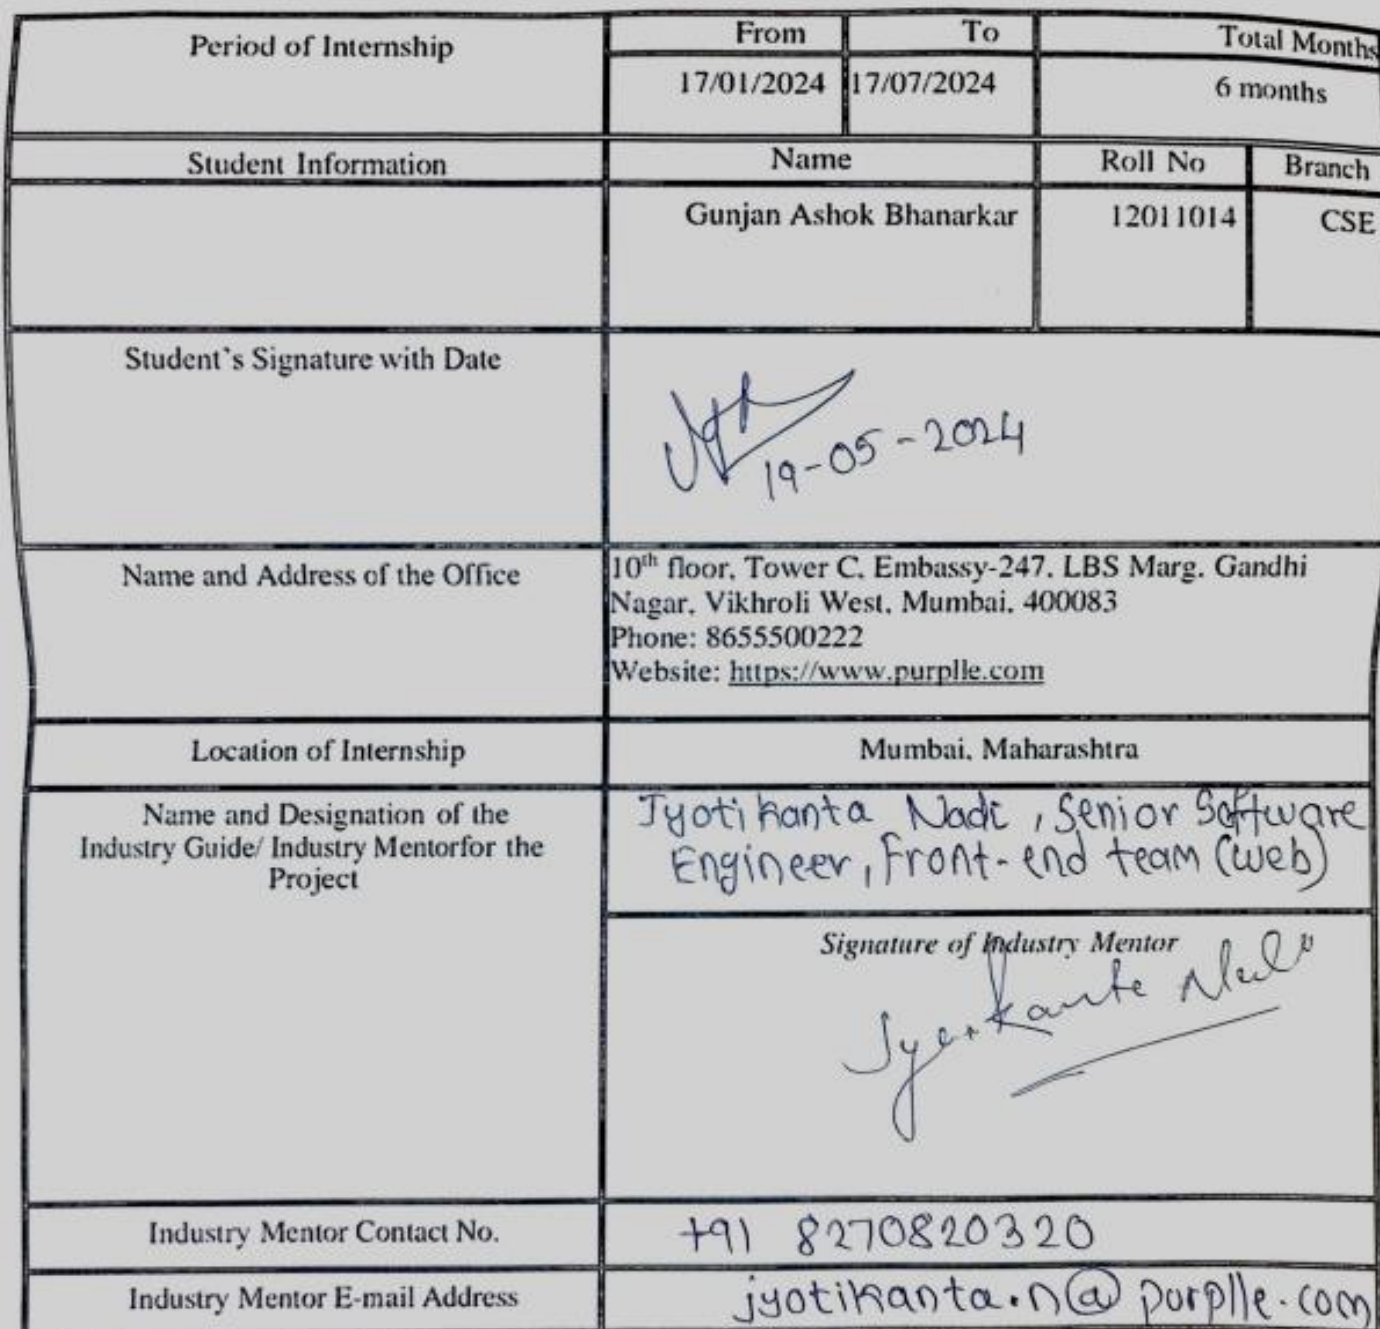 Period of Internship
From To Total Months
17/01/2024 17/07/2024 6 months
Student Information Name Roll No Branch
Gunjan Ashok Bhanarkar 12011014 CSE
Student`s Signature with Date
19-05-2024
Name and Address of the Office
10th floor, Tower C, Embassy-247, LBS Marg, Gandhi
Nagar, Vikhroli West, Mumbai, 400083
Phone: 8655500222
Website: https://www.purplle.com
Location of Internship Mumbai, Maharashtra
Name and Designation of the
Industry Guide/ Industry Mentorfor the
Project
Jyotikanta Nadi, Senior Software
Engineer, Front-end team (web)
Signature of Industry Mentor
Industry Mentor Contact No. +91 8270820320
Industry Mentor E-mail Address jyotikanta.n@purplle.com